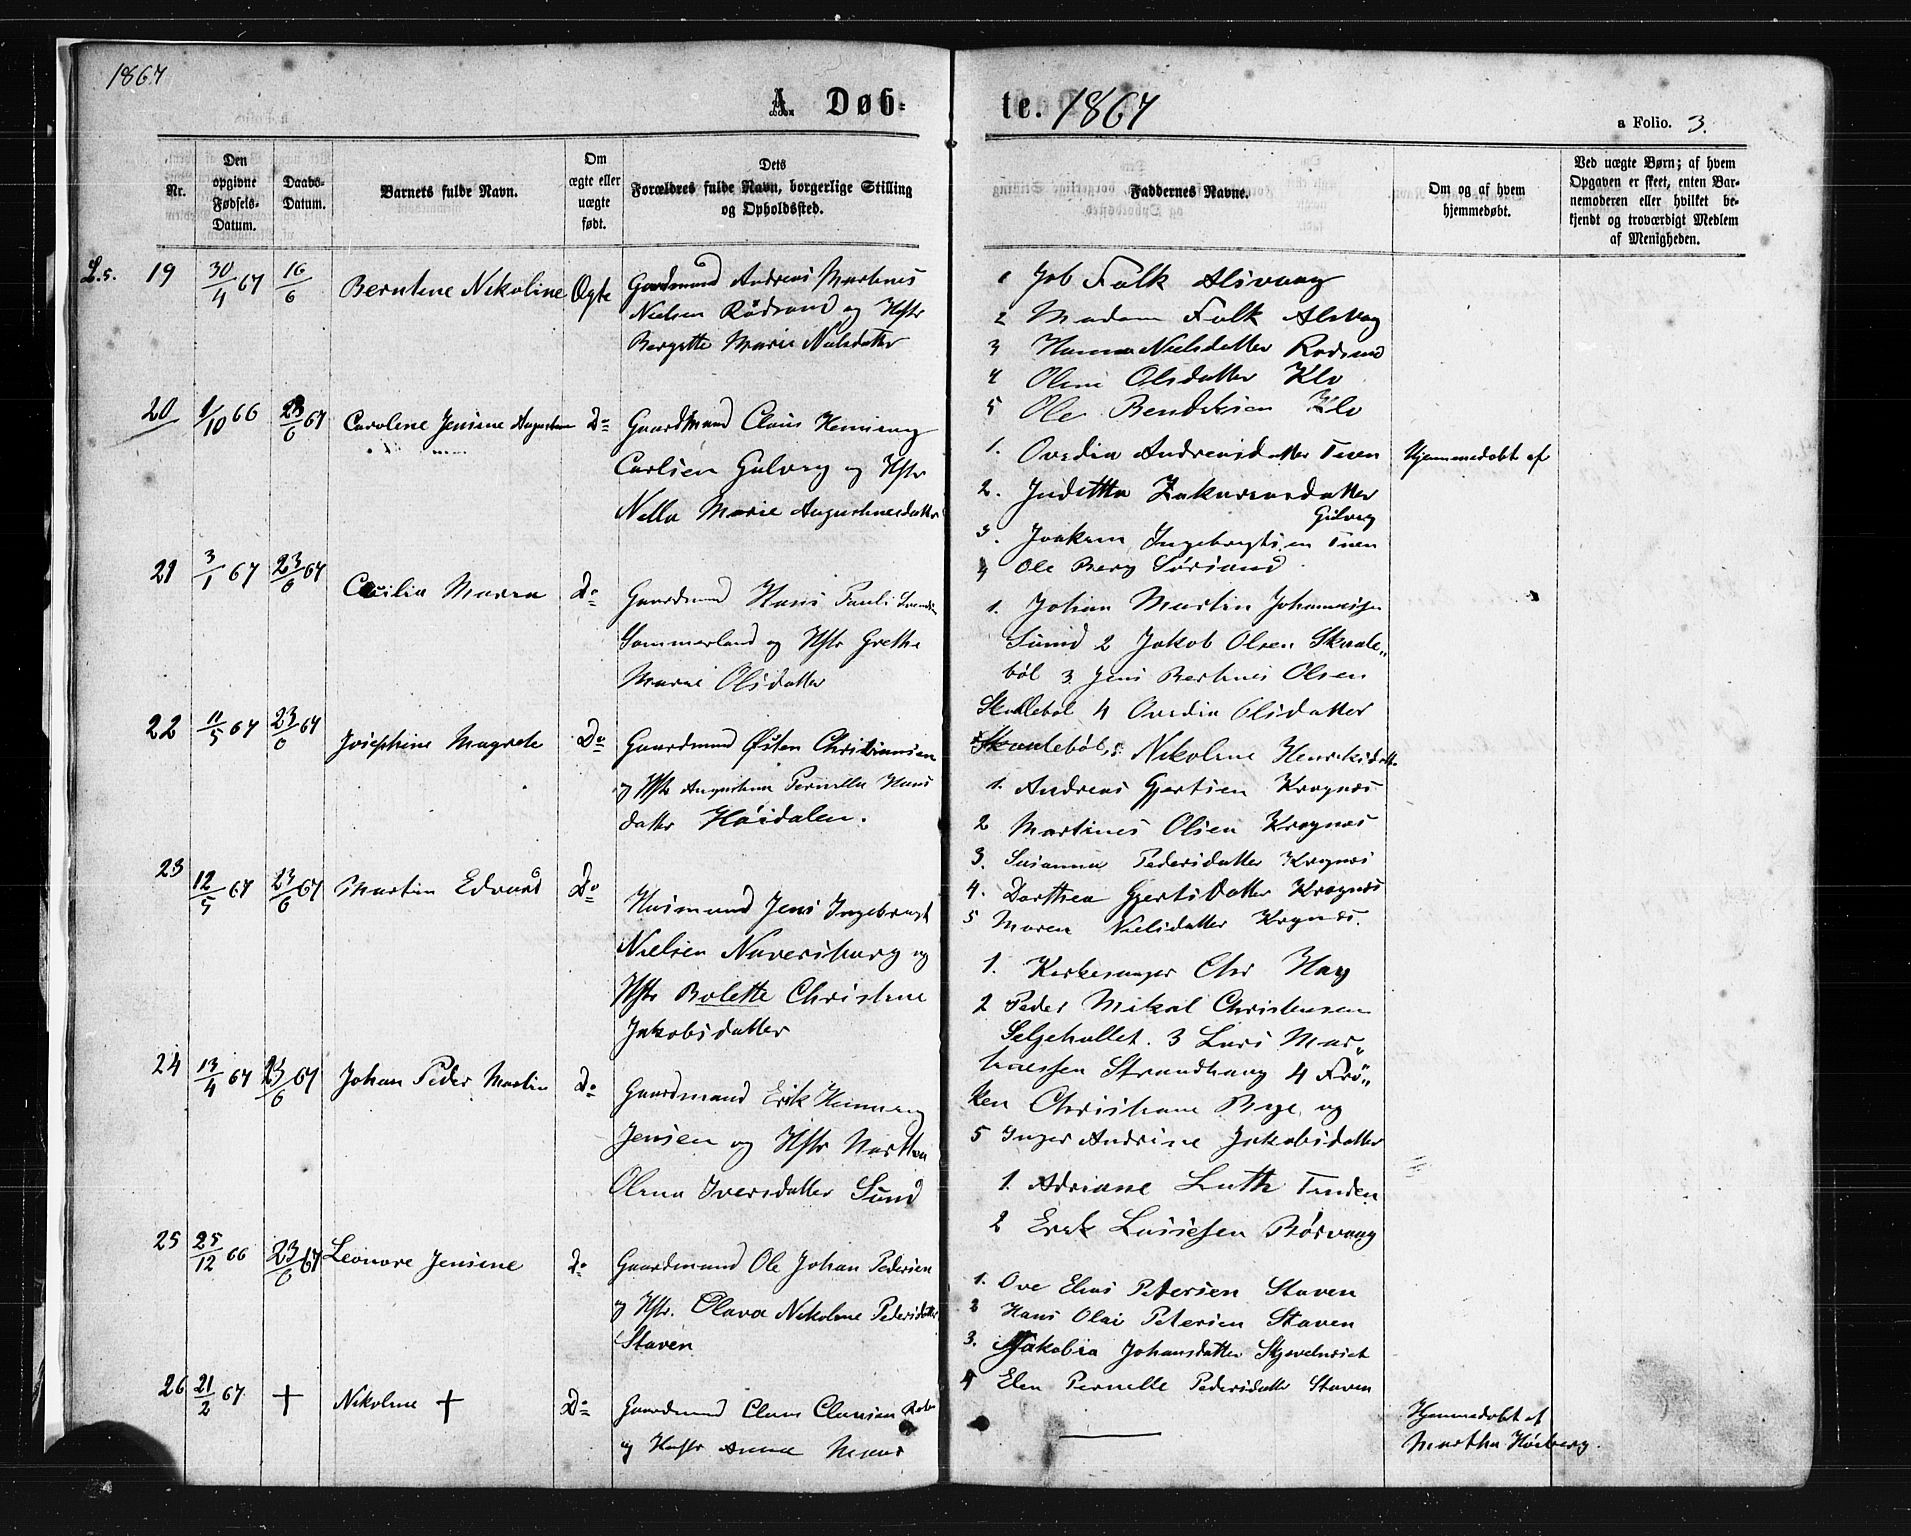 1867
A. Døb-
te. 1867
a Folio. 3.
Nr.
Den opgivne Fødsels-Datum.
Daabs-Datum.
Barnets fulde Navn.
Om ægte eller uægte født.
Dets
Forældres fulde Navn, borgerlige Stilling
og Opholdssted.
Faddernes Navne.
Om og af hvem
hjemmedøbt.
Ved uægte Børn; af hvem
Opgaven er skeet, enten Bar-
nemoderen eller hvilket be-
kjendt og troværdigt Medlem
af Menigheden.
L.s. 19 30/4 67 16/6 Berntine Nikoline Ægte Gaardmand Andreas Martines
Nielsen Rødsand og Hstr
Bergette Marie Nielsdatter
1 Job Falk Alsvaag
2 Madam Falk Alsvag
3 Hanna Nielsdatter Rodsand
4 Oline Olsdatter Klo
5 Ole Bendiksen Klo
20 1/10 66 23/6 67 Caroline Jensine Augustine Do Gaardmand Claus Henning
Carlsen Gulvig og Hstr
Nella Marie Augustinusdatter
1. Ovedia Andreasdatter Tuen
2. Judittha Zakariasdatter
Gulvig
3. Joakim Ingebrigtsen Tuen
4 Ole Berg Sørsand
Hjemmedøbt af
21 3/1 67 23/6 67 Cecilia Maren Do Gaardmand Hans Pauli
Sommerland og Hstr Grethe
Marie Olsdatter
1. Johan Martin Johannessen
Sund 2 Jakob Olsen Skaale„
bøl 3. Jens Bertines Olsen
Skallebøl 4 Ovedia Olsdatter
Skaalebøl, 5. Nikoline Henriksdatter
22 11/5 67 23/6 67 Josephine Magrete Do Gaardmand Østen Christiansen
og Hstr Augustina Pernella Hans
datter Høidalen.
1. Andreas Gjertsen Krognæs
2 Martines Olsen Krognæs
3. Susanna Pedersdatter Krognæs
4. Dorthea Gjertsdatter Krognæs
5 Maren Nielsdatter Krognæs.
23 12/5 67 23/6 67 Martin Edvard Do Husmand Jens Ingebrigt
Nielsen Naversharg og
Hstr Bolette Christine
Jakobsdatter
1. Kirkesanger Chr Hay
2 Peder Mikal Christensen
Selgehallet. 3 Lars Mar„
thiessen Strandhaug 4 Frø„
ken Christiane Bye, og
5 Inger Andrine Jakobsdatter
24 13/4 67 23/6 67 Johan Peder Martin Do Gaardmand Erik Henning
Jensen og Hstr Martha
Olena Iversdatter Sund
1. Adriane Luth Tinden
2 Erik Lassesen Børvaag
25 25/12 66 23/6 67 Leonore Jensine Do Gaardmand Ole Johan Pedersen
og Hstr. Olava Nikoline Pedersdatter
Staven
1. Ove Elias Petersen Staven
2 Hans Olai Petersen Staven
3. Jakobia Johansdatter
4 Elen Pernelle Pedersdatter Staven
26 21/2 67 + Nikoline + Do Gaardmand Claus Clausen
og Hustr Anna
Hjemmedøbt af
Martha Høiberg.